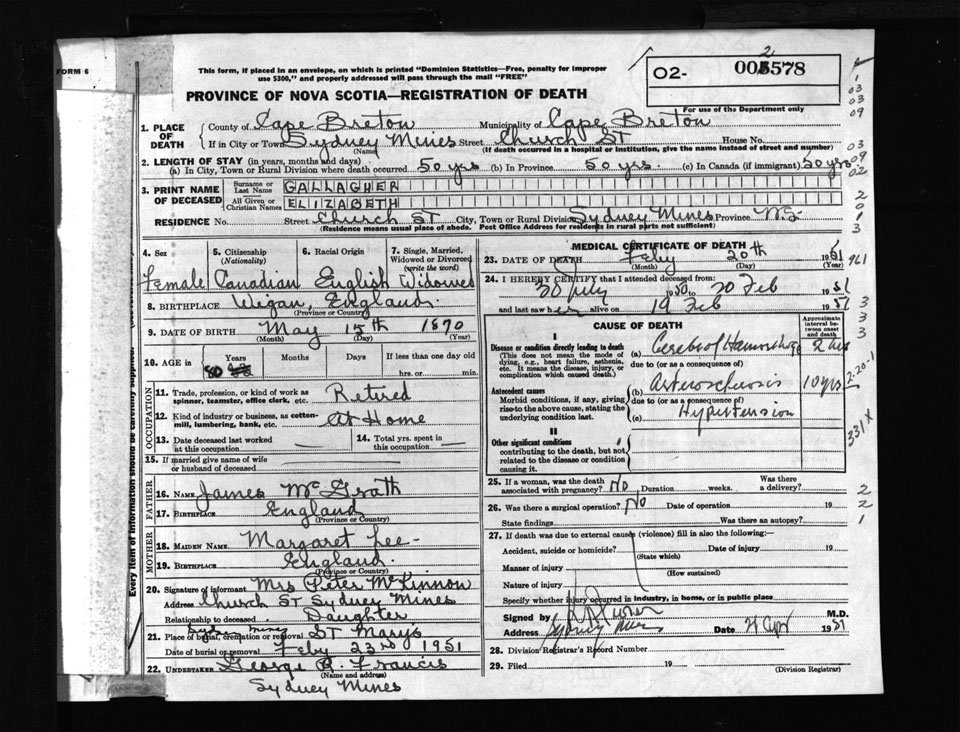 FORM 6
This form, if placed in an envelope, on which is printed "Dominion Statistics—Free, penalty for improper
use $300," and properly addressed will pass through the mail "FREE"
2
O2- 005578
PROVINCE OF NOVA SCOTIA—REGISTRATION OF DEATH
For use of the Department only
1. PLACE OF DEATH { County of Cape Breton Municipality of Cape Breton
If in City or Town Sydney Mines Street Church ST House No.
(Name) (If death occurred in a hospital or institution, give the name instead of street and number)
2. LENGTH OF STAY (in years, months and days)
(a) In City, Town or Rural Division where death occurred 50 yrs (b) In Province 50 yrs. (c) In Canada (if immigrant) 50 yrs.
3. PRINT NAME OF DECEASED { Surname or Last Name GALLAGHER
All Given or Christian Names ELIZABETH
RESIDENCE No. Street Church ST City, Town or Rural Division Sydney Mines Province N.S.
(Residence means usual place of abode. Post Office Address for residents in rural parts not sufficient)
4. Sex 5. Citizenship (Nationality) 6. Racial Origin 7. Single, Married, Widowed or Divorced (write the word)
Female Canadian English Widowed
8. BIRTHPLACE Wigan, England.
(Province or Country)
9. DATE OF BIRTH May 15th 1870
(Month) (Day) (Year)
10. AGE in Years Months Days If less than one day old
80 hrs. or min.
OCCUPATION
11. Trade, profession, or kind of work as
spinner, teamster, office clerk, etc. Retired
12. Kind of industry or business, as cotton-
mill, lumbering, bank, etc. At Home
13. Date deceased last worked at this occupation 14. Total yrs. spent in this occupation
15. If married give name of wife
or husband of deceased
FATHER
16. NAME James McGrath
17. BIRTHPLACE England
(Province or Country)
MOTHER
18. MAIDEN NAME Margaret Lee-
19. BIRTHPLACE England
(Province or Country)
20. Signature of informant Mrs Peter McKinnon
Address Church ST Sydney Mines
Relationship to deceased Daughter
21. Place of burial, cremation or removal Sydney Mines ST Mary's
Date of burial or removal Feby 23rd 1951
22. UNDERTAKER George R. Francis
(Name and address)
Sydney Mines
Every item of information should be carefully supplied.
MEDICAL CERTIFICATE OF DEATH
23. DATE OF DEATH Feby 20th 1951
(Month) (Day) (Year)
24. I HEREBY CERTIFY that I attended deceased from:
20 July 1950 to 20 Feb 1951
and last saw her alive on 19 Feb 1951
CAUSE OF DEATH
Approximate interval between onset and death
I
Disease or condition directly leading to death
(This does not mean the mode of
dying, e.g., heart failure, asthenia,
etc. It means the disease, injury, or
complication which caused death.)
(a) Cerebral Hemorrhage 2 hrs
due to (or as a consequence of)
Antecedent causes
Morbid conditions, if any, giving
rise to the above cause, stating the
underlying condition last.
(b) Arteriosclerosis 10 yrs
due to (or as a consequence of)
(c) Hypertension
II
Other significant conditions
contributing to the death, but not
related to the disease or condition
causing it.
25. If a woman, was the death
associated with pregnancy? No Duration weeks. Was there a delivery?
26. Was there a surgical operation? No Date of operation 19
State findings Was there an autopsy?
27. If death was due to external causes (violence) fill in also the following:—
Accident, suicide or homicide? Date of injury 19
(State which)
Manner of injury
(How sustained)
Nature of injury
Specify whether injury occurred in industry, in home, or in public place
Signed by M.D.
Address Sydney Mines Date 21 Apr 1951
28. Division Registrar's Record Number
29. Filed 19
(Division Registrar)
1
03
03
09
03
09
02
2
0
1
3
961
3
3
3
2-20-1
331X
2
2
1